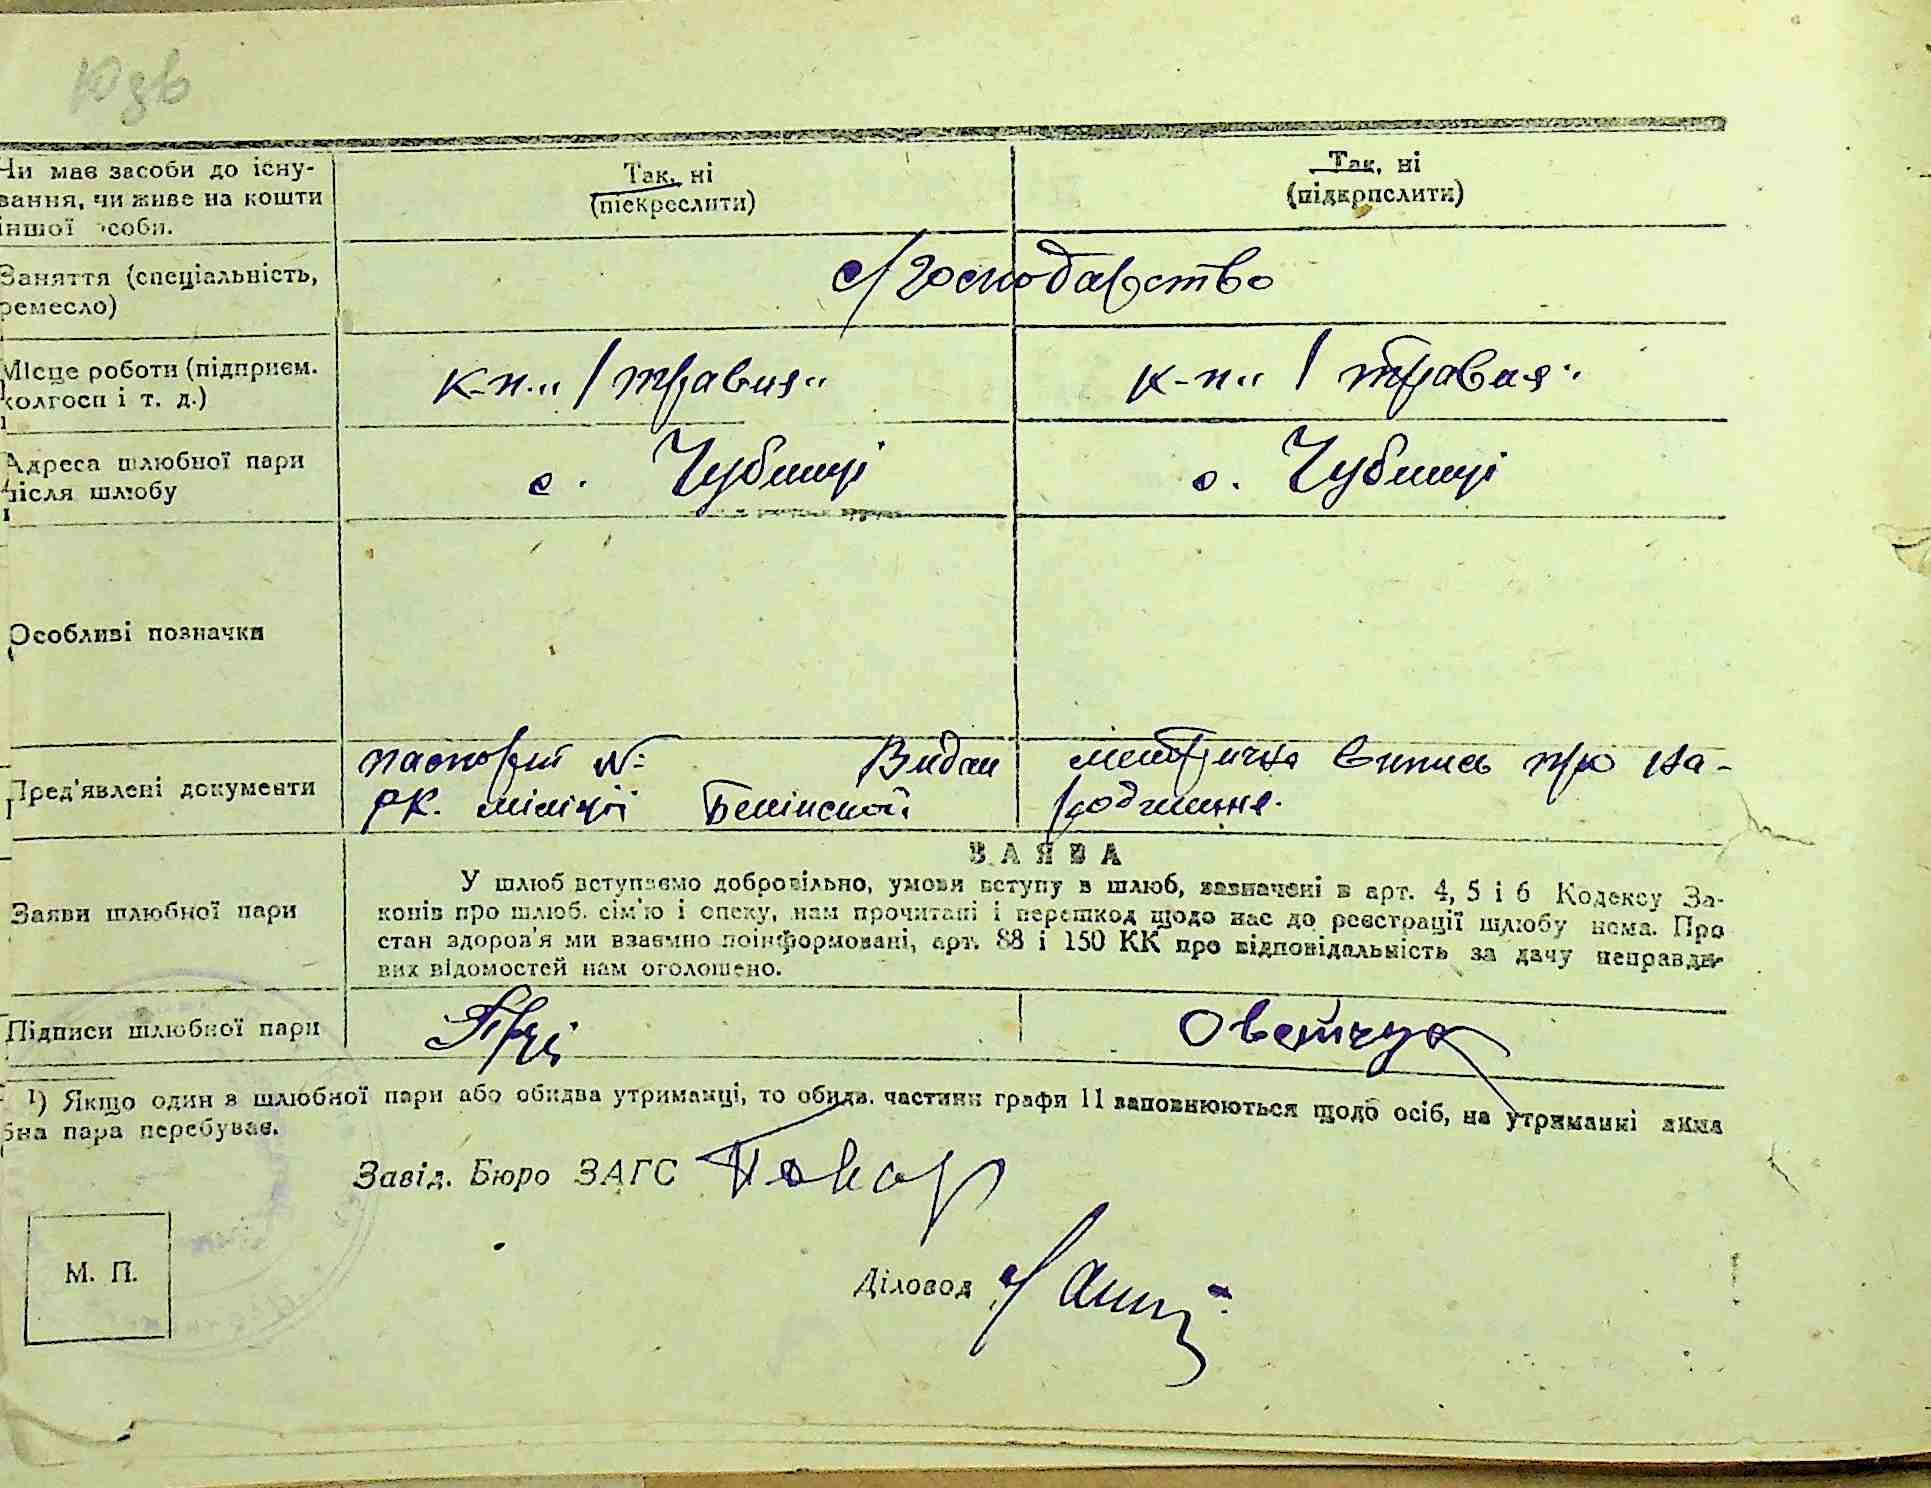 Чи має засоби до існу-
вання, чи живе на кошти
іншої особи.
Так, ні
(піекреслити)
Так, ні
(підкрпслити)
Заняття (спеціальність,
ремесло)
с/господарство
Місце роботи (підприєм.
колгосп і т. д.)
к-п „1 травня“
к-п „1 травня“
Адреса шлюбної пари
після шлюбу
с. Чубинці
с. Чубинці
Особливі позначки
Пред'явлені документи
паспорт №: Видан
РК. міліції
метрична випись про на-
родження.
Заяви шлюбної пари
ЗАЯВА
У шлюб вступаємо добровільно, умови вступу в шлюб, зазначені в арт. 4, 5 і 6 Кодексу За-
конів про шлюб. сім'ю і опеку, нам прочитані і перешкод щодо нас до реєстрації шлюбу нема. Про
стан здоров'я ми взаємно поінформовані, арт. 88 і 150 КК про відповідальність за дачу неправди-
вих відомостей нам оголошено.
Підписи шлюбної пари
¹) Якщо один з шлюбної пари або обидва утриманці, то обидв. частини графи 11 заповнюються щодо осіб, на утриманні яких
бна пара перебуває.
Завід. Бюро ЗАГС
М. П.
Діловод